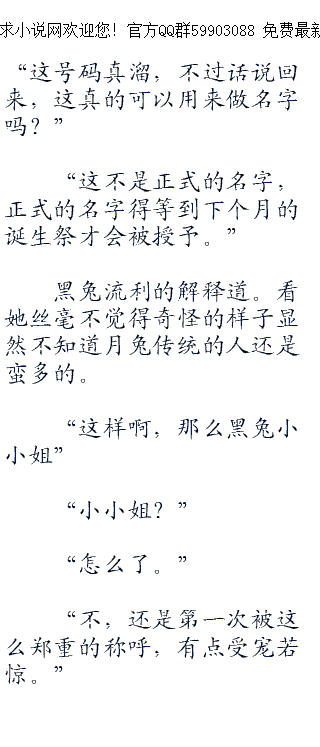 求小说网欢迎您！官方QQ群59903088 免费最新
“这号码真溜，不过话说回
来，这真的可以用来做名字
吗？”
“这不是正式的名字，
正式的名字得等到下个月的
诞生祭才会被授予。”
黑兔流利的解释道。看
她丝毫不觉得奇怪的样子显
然不知道月兔传统的人还是
蛮多的。
“这样啊，那么黑兔小
小姐”
“小小姐？”
“怎么了。”
“不，还是第一次被这
么郑重的称呼，有点受宠若
惊。”